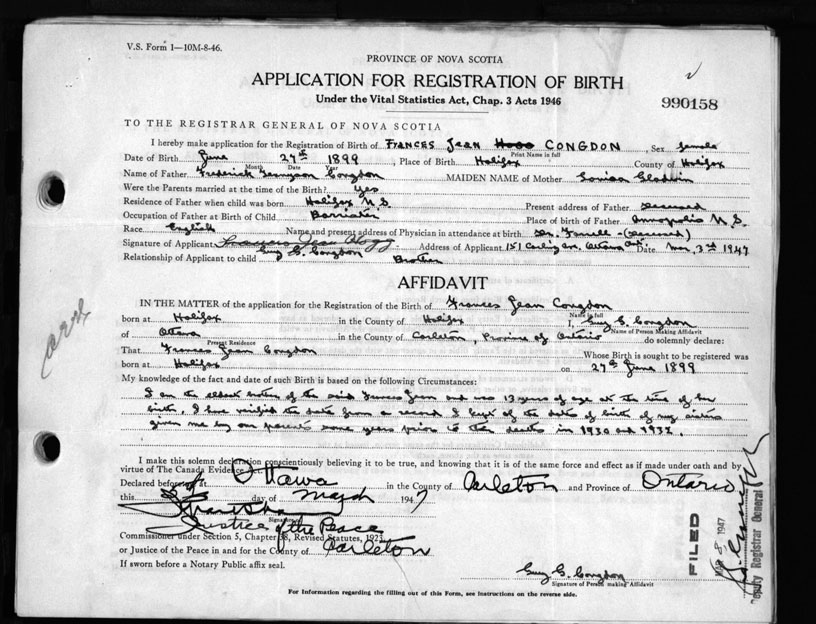 V.S. Form 1—10M-8-46.
PROVINCE OF NOVA SCOTIA
APPLICATION FOR REGISTRATION OF BIRTH
Under the Vital Statistics Act, Chap. 3 Acts 1946
990158
TO THE REGISTRAR GENERAL OF NOVA SCOTIA
I hereby make application for the Registration of Birth of FRANCES JEAN CONGDON, Sex female
Print Name in full
Date of Birth June 27th 1899, Place of Birth Halifax County of Halifax
Month Date Year
Name of Father Frederick Tennyson Congdon MAIDEN NAME of Mother Louisa Gladwin
Were the Parents married at the time of the Birth? Yes
Residence of Father when child was born Halifax N.S. Present address of Father deceased
Occupation of Father at Birth of Child Barrister Place of birth of Father Annapolis N.S.
Race English Name and present address of Physician in attendance at birth Dr. Farrell - (deceased)
Signature of Applicant Frances Jean Hogg Address of Applicant 151 Carling Av. Ottawa Ont. Date Mar. 3rd 1947
Guy C. Congdon
Relationship of Applicant to child Brother
AFFIDAVIT
IN THE MATTER of the application for the Registration of the Birth of Frances Jean Congdon
Name in full
born at Halifax in the County of Halifax I, Guy C. Congdon
Name of Person Making Affidavit
of Ottawa in the County of Carleton, Province of Ontario do solemnly declare:
Present Residence
That Frances Jean Congdon Whose Birth is sought to be registered was
born at Halifax on 27th June 1899
My knowledge of the fact and date of such Birth is based on the following Circumstances:
I am the eldest brother of the said Frances Jean and was 13 years of age at the time of her
birth, I have verified the date from a record I kept of the dates of birth of my sisters
given me by our parents some years prior to their deaths in 1930 and 1932.
I make this solemn declaration conscientiously believing it to be true, and knowing that it is of the same force and effect as if made under oath and by
virtue of The Canada Evidence
Declared before me at Ottawa in the County of Carleton and Province of Ontario
this day of March 1947
Signature
Justice of the Peace
Commissioner under Section 5, Chapter 38, Revised Statutes, 1923
or Justice of the Peace in and for the County of Carleton
If sworn before a Notary Public affix seal.
Guy C. Congdon
Signature of Person making Affidavit
For Information regarding the filling out of this Form, see Instructions on the reverse side.
FILED
8 1947
Deputy Registrar General